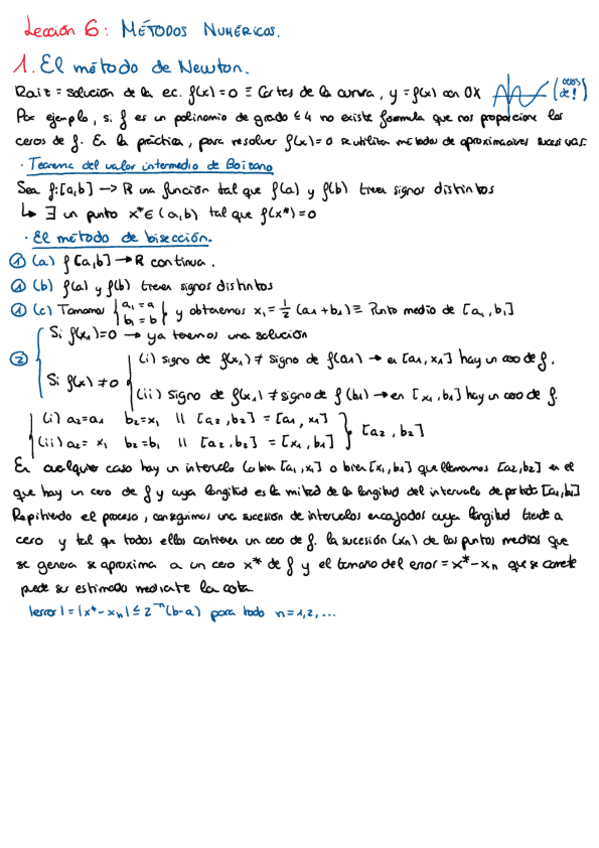 Lección 6: MÉTODOS NUMÉRICOS.
1. El método de Newton.
Raiz = solución de la ec. f(x) = 0 ≡ Cortes de la curva, y = f(x) con OX (ceros de f)
Por ejemplo, si f es un polinomio de grado ≤ 4 no existe formula que nos proporcione los
ceros de f. En la práctica, para resolver f(x)=0 se utilizan métodos de aproximaciones sucesivas.
· Teorema del valor intermedio de Bolzano
Sea f:[a,b] → R una función tal que f(a) y f(b) tienen signos distintos
↳ ∃ un punto x* ∈ (a,b) tal que f(x*) = 0
· El método de bisección.
① (a) f [a,b] → R continua.
① (b) f(a) y f(b) tienen signos distintos
① (c) Tomamos { a₁ = a b₁ = b } y obtenemos x₁ = 1/2 (a₁ + b₁) ≡ Punto medio de [a₁, b₁]
② Si f(x₁)=0 → ya tenemos una solución
Si f(x) ≠ 0
(i) signo de f(x₁) ≠ signo de f(a₁) → en [a₁, x₁] hay un cero de f.
(ii) signo de f(x₁) ≠ signo de f(b₁) → en [x₁, b₁] hay un cero de f.
(i) a₂=a₁ b₂=x₁ || [a₂, b₂] = [a₁, x₁]
(ii) a₂= x₁ b₂=b₁ || [a₂, b₂] = [x₁, b₁] } [a₂, b₂]
En cualquier caso hay un intervalo (o bien [a₁, x₁] o bien [x₁, b₁] que llamamos [a₂, b₂] en el
que hay un cero de f y cuya longitud es la mitad de la longitud del intervalo de partida [a₁, b₁]
Repitiendo el proceso, conseguimos una sucesión de intervalos encajados cuya longitud tiende a
cero y tal que todos ellos contienen un cero de f. la sucesión (xn) de los puntos medios que
se genera se aproxima a un cero x* de f y el tamaño del error = x* - xn que se comete
puede ser estimado mediante la cota
|error| = |x* - xn| ≤ 2⁻ⁿ (b-a) para todo n = 1,2,...